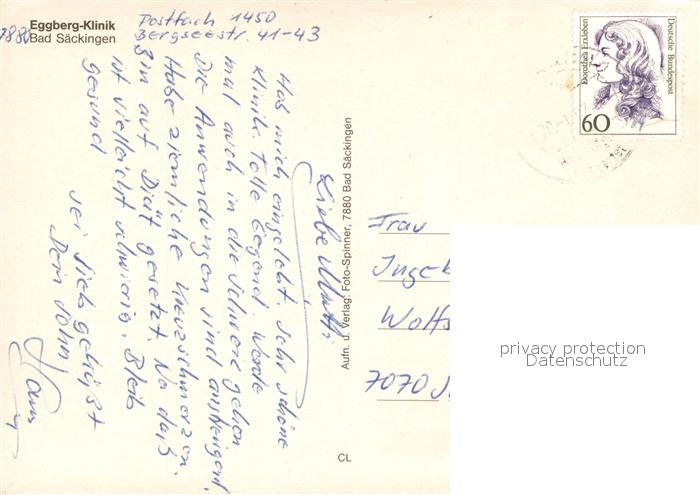 Eggberg-Klinik
7880 Bad Säckingen
Postfach 1450
Bergseestr. 41-43
Liebe Mutti
Hab mich eingelebt. Sehr schöne
Klinik. Tolle Gegend. Werde
mal auch in die Schweiz gehen
Die Anwendungen sind anstrengend.
Habe ziemliche Kreuzschmerzen.
Bin auf Diät gesetzt. Na das
ist vielleicht schwierig. Bleib
gesund
Sei lieb gegrüßt
Dein Sohn
Aufn. u. Verlag: Foto-Spinner, 7880 Bad Säckingen
CL
Dorothea Erxleben
Deutsche Bundespost
60
Frau
Wolfs
7070
privacy protection
Datenschutz